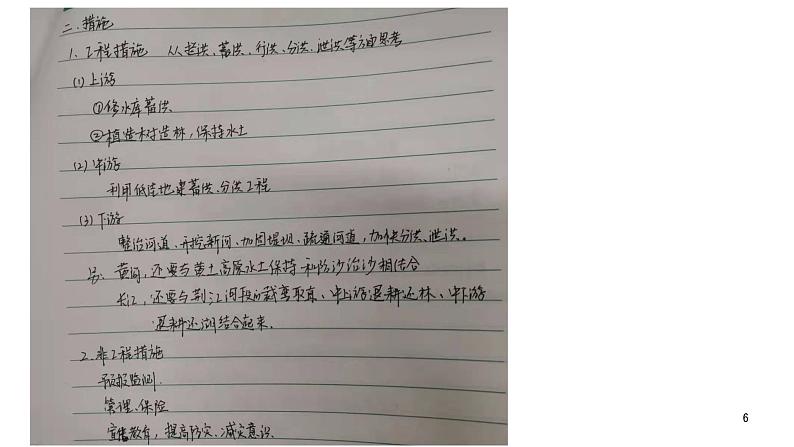 二、措施
1、工程措施 从拦洪、蓄洪、行洪、分洪、泄洪等方面思考
(1)上游
①修水库蓄洪
②植造树造林,保持水土
(2)中游
利用低洼地 蓄洪、分洪工程
(3)下游
整治河道、开挖新河、加固堤坝、疏通河道,加快分洪、泄洪。
另:黄河,还要与黄土高原水土保持和防沙治沙相结合
长江,还要与荆江河段的裁弯取直、中上游退耕还林、中下游
退耕还湖结合起来.
2、非工程措施
预报监测
管理、保险
宣传教育,提高防灾、减灾意识.
6